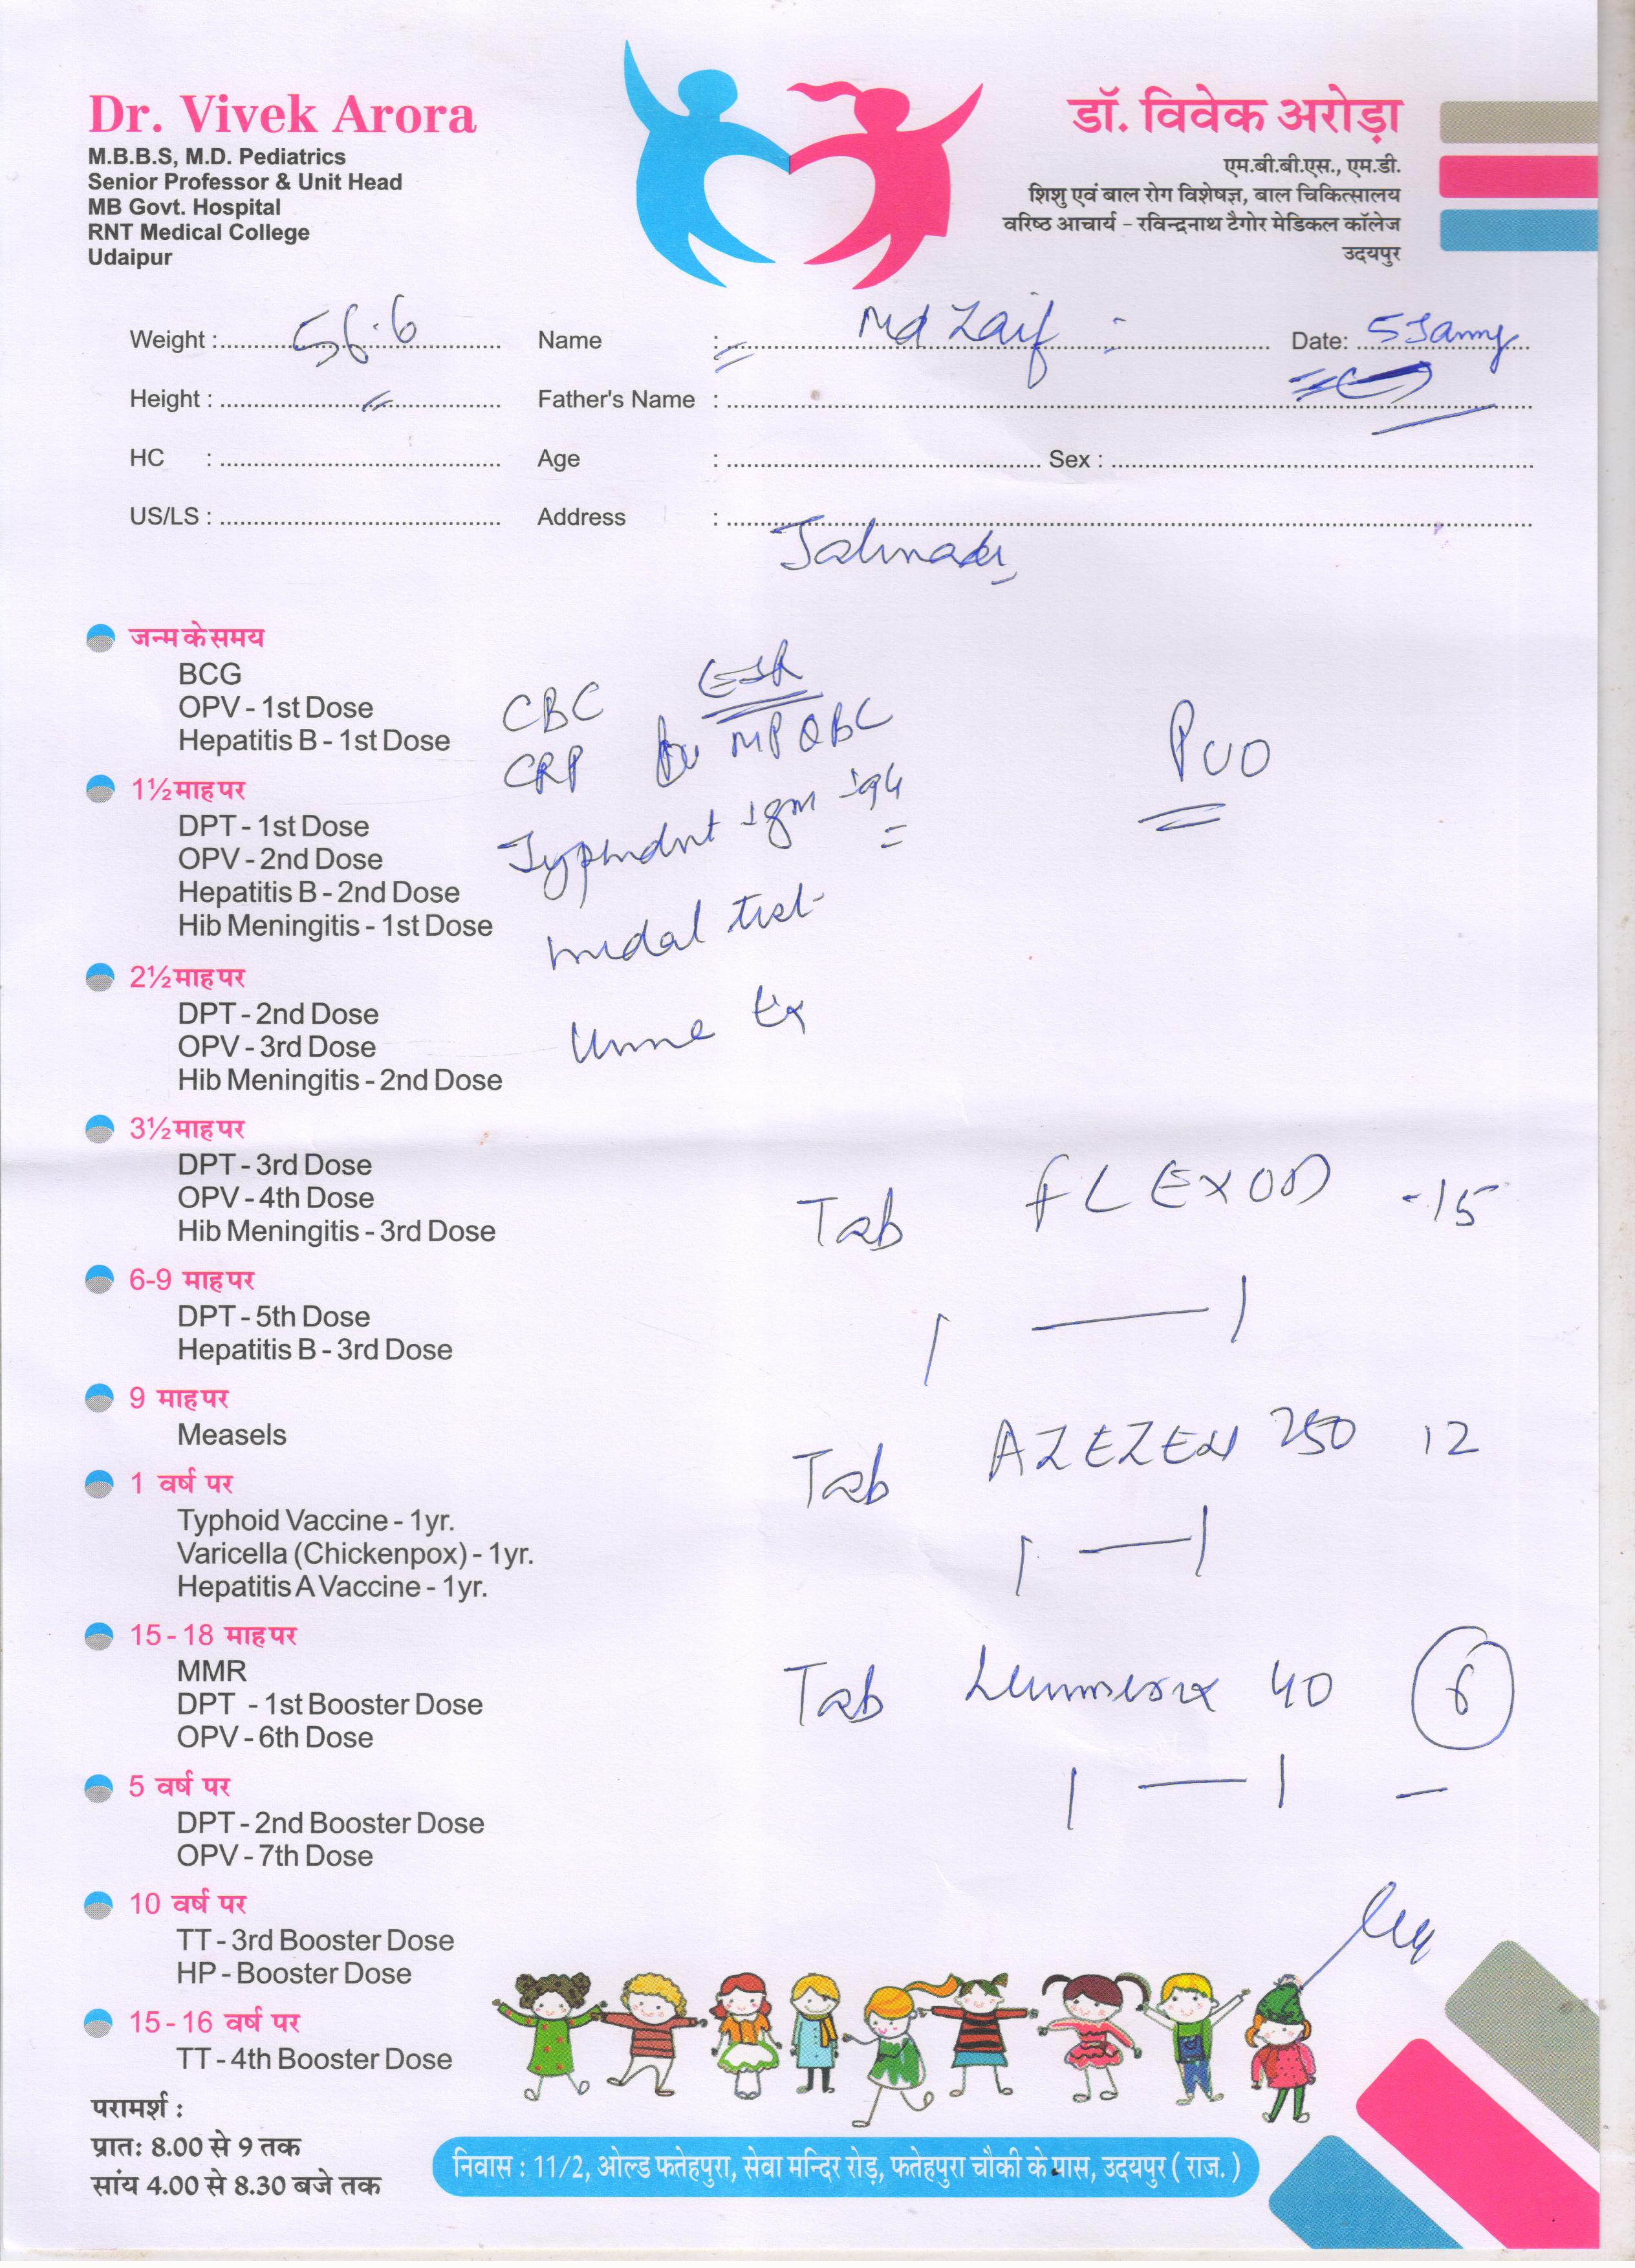 Dr. Vivek Arora
M.B.B.S, M.D. Pediatrics
Senior Professor & Unit Head
MB Govt. Hospital
RNT Medical College
Udaipur
डॉ. विवेक अरोड़ा
एम.बी.बी.एस., एम.डी.
शिशु एवं बाल रोग विशेषज्ञ, बाल चिकित्सालय
वरिष्ठ आचार्य - रविन्द्रनाथ टैगोर मेडिकल कॉलेज
उदयपुर
Weight : 56.6 Name : Md Zaif Date: 5
Height : Father's Name :
HC : Age : Sex :
US/LS : Address :
जन्म के समय
BCG
OPV - 1st Dose
Hepatitis B - 1st Dose
CBC ESR
CRP MP QBC
IgM
test
Urine Ex
PUO
1½ माह पर
DPT - 1st Dose
OPV - 2nd Dose
Hepatitis B - 2nd Dose
Hib Meningitis - 1st Dose
2½ माह पर
DPT - 2nd Dose
OPV - 3rd Dose
Hib Meningitis - 2nd Dose
3½ माह पर
DPT - 3rd Dose
OPV - 4th Dose
Hib Meningitis - 3rd Dose
6-9 माह पर
DPT - 5th Dose
Hepatitis B - 3rd Dose
9 माह पर
Measels
1 वर्ष पर
Typhoid Vaccine - 1yr.
Varicella (Chickenpox) - 1yr.
Hepatitis A Vaccine - 1yr.
15-18 माह पर
MMR
DPT - 1st Booster Dose
OPV - 6th Dose
5 वर्ष पर
DPT - 2nd Booster Dose
OPV - 7th Dose
10 वर्ष पर
TT - 3rd Booster Dose
HP - Booster Dose
15-16 वर्ष पर
TT - 4th Booster Dose
Tab FLEXON -15
1 — 1
Tab 250 12
1 — 1
Tab 40 6
1 — 1 —
परामर्श :
प्रातः 8.00 से 9 तक
सांय 4.00 से 8.30 बजे तक
निवास : 11/2, ओल्ड फतेहपुरा, सेवा मन्दिर रोड़, फतेहपुरा चौकी के पास, उदयपुर ( राज. )